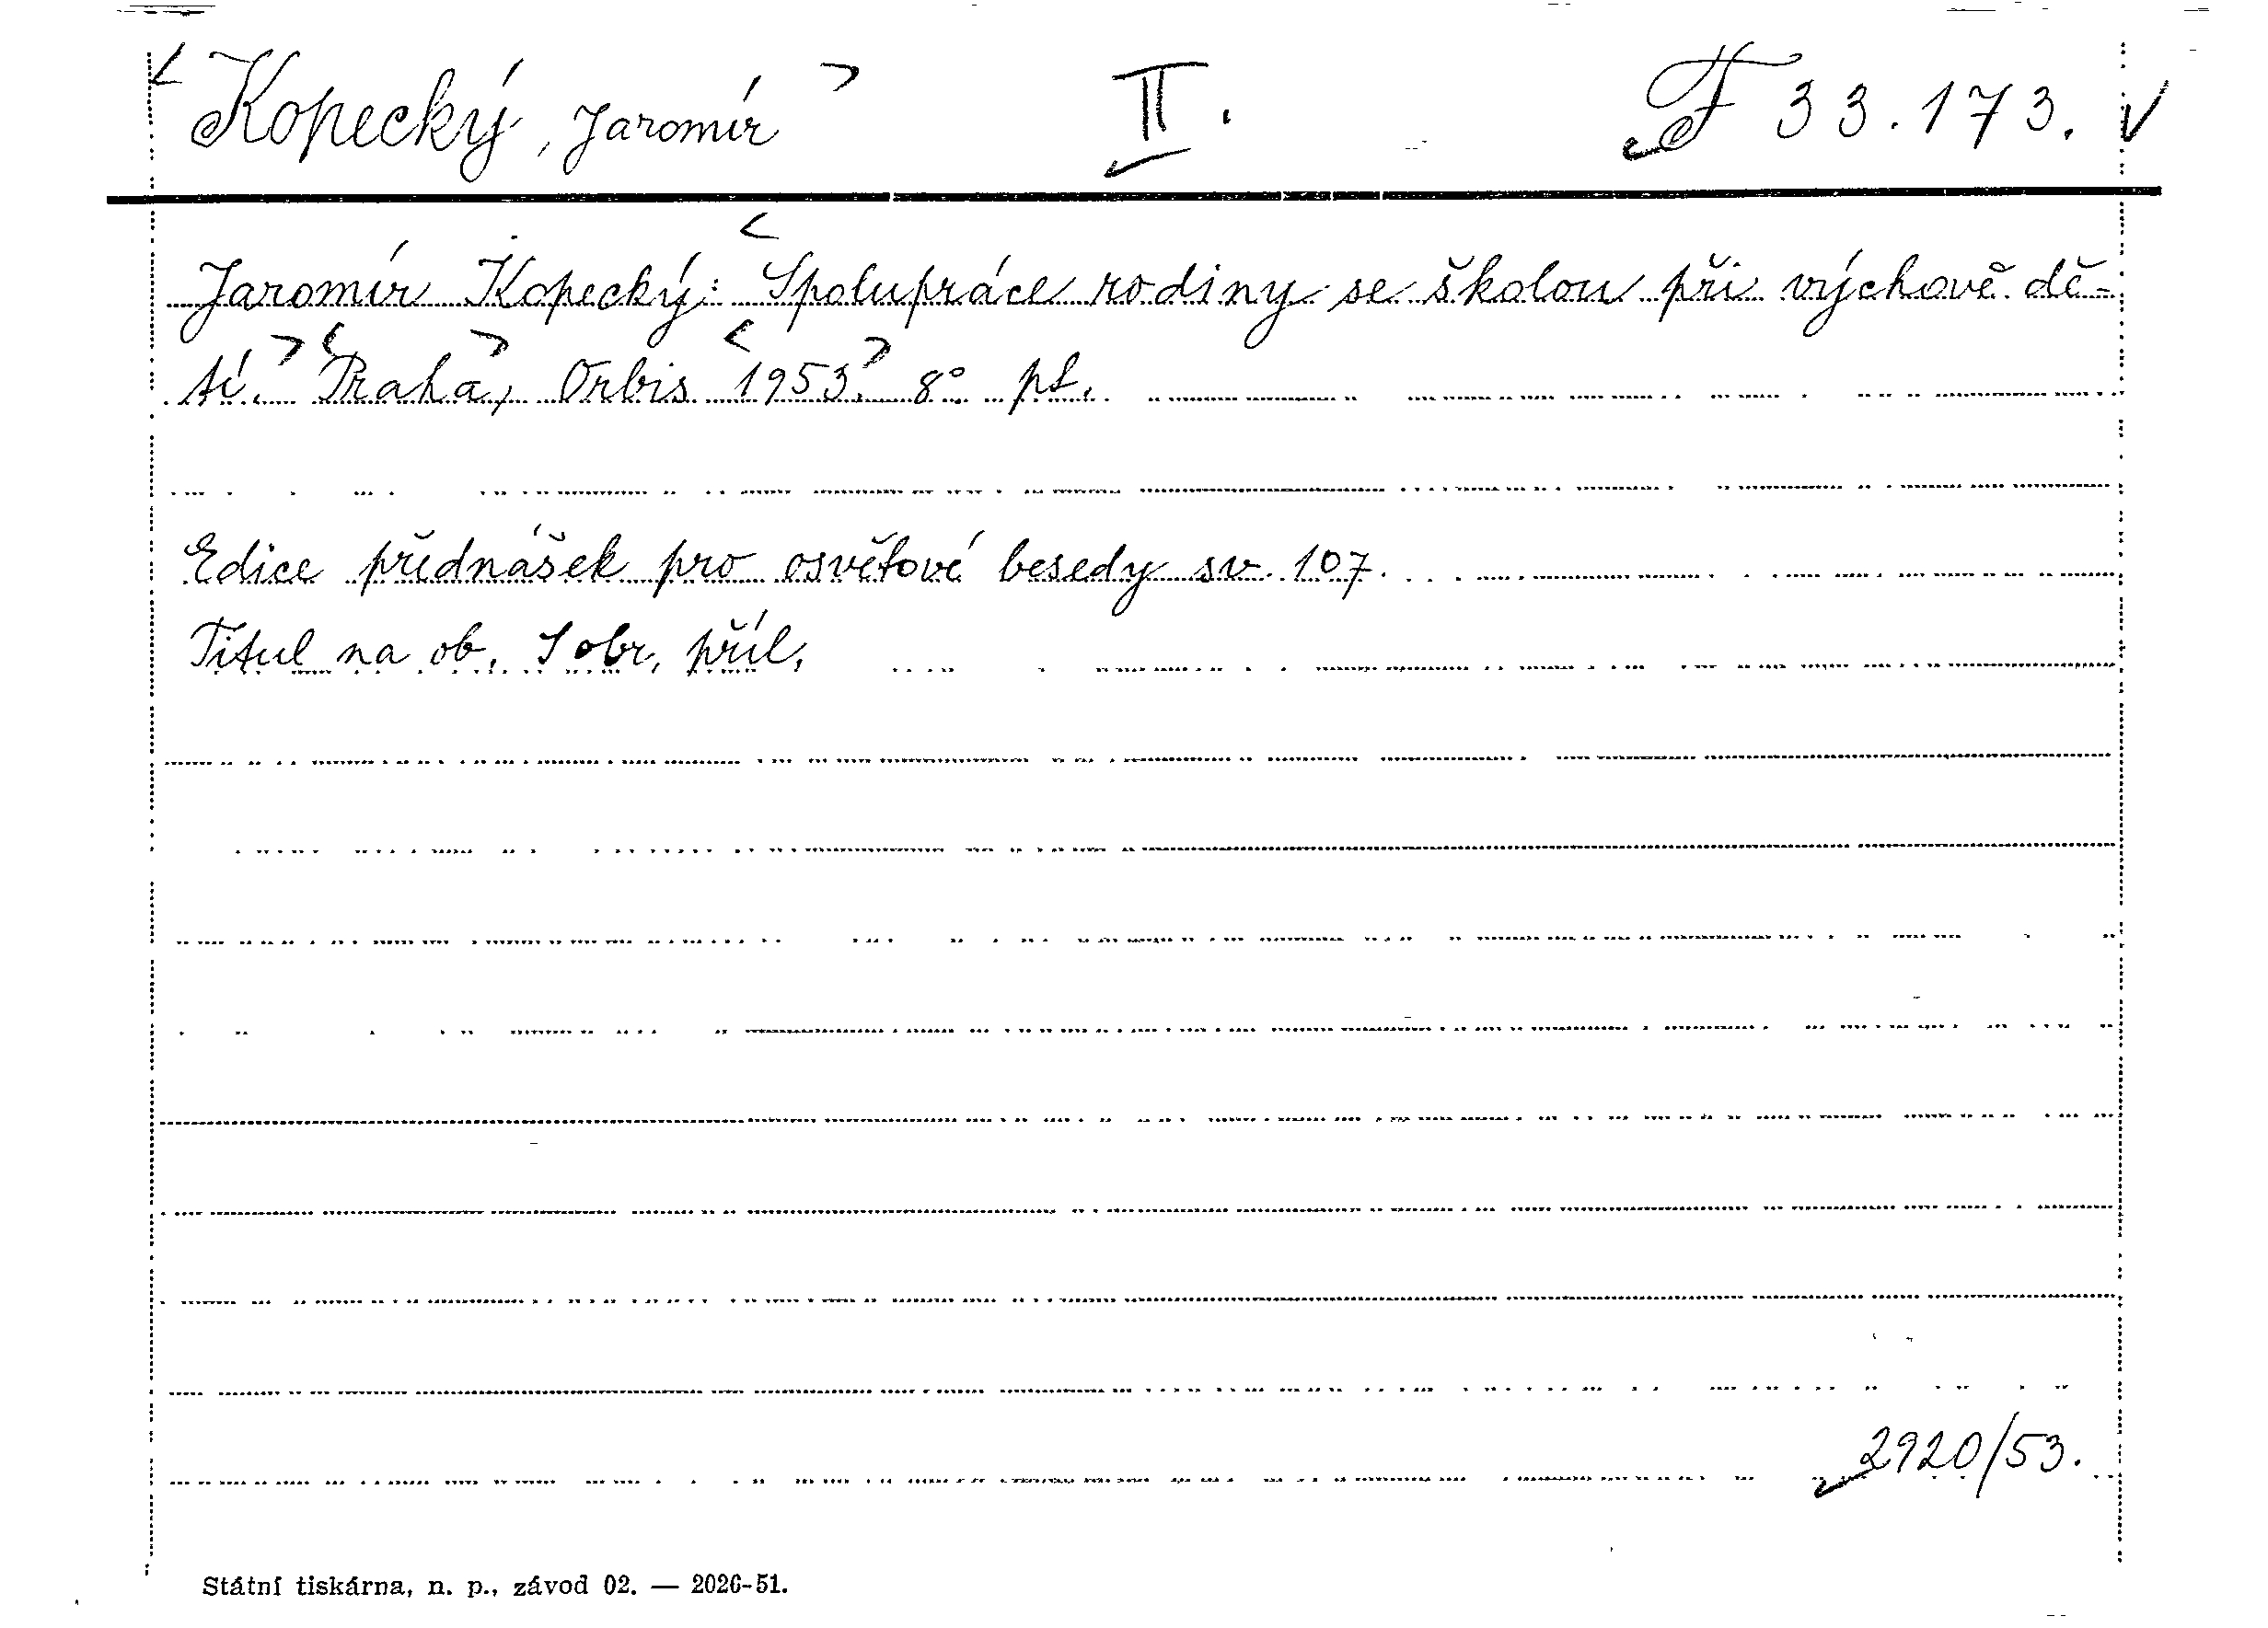 Kopecký, Jaromír II. F 33.173.
Jaromír Kopecký: Spolupráce rodiny se školou při výchově dě-
tí. Praha, Orbis 1953. 8° pt.
Edice přednášek pro osvětové besedy sv. 107.
Titul na ob. S obr. příl.
2920/53.
Státní tiskárna, n. p., závod 02. — 2026-51.